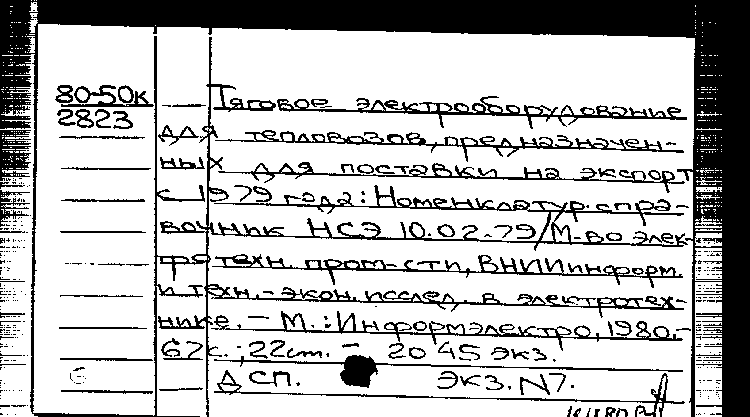 80-50к Тяговое электрооборудование
2823
для тепловозов, предназначен-
ных для поставки на экспорт
с 1979 года: Номенклатур. спра-
вочник НСЭ 10.02.79/М-во элек-
тротехн. пром-сти, ВНИИинформ.
и техн.-экон. исслед. в электротех-
нике. - М.: Информэлектро, 1980.-
67с.; 22см. - 2045 экз.
6 ДСП. ЭКЗ. N7.